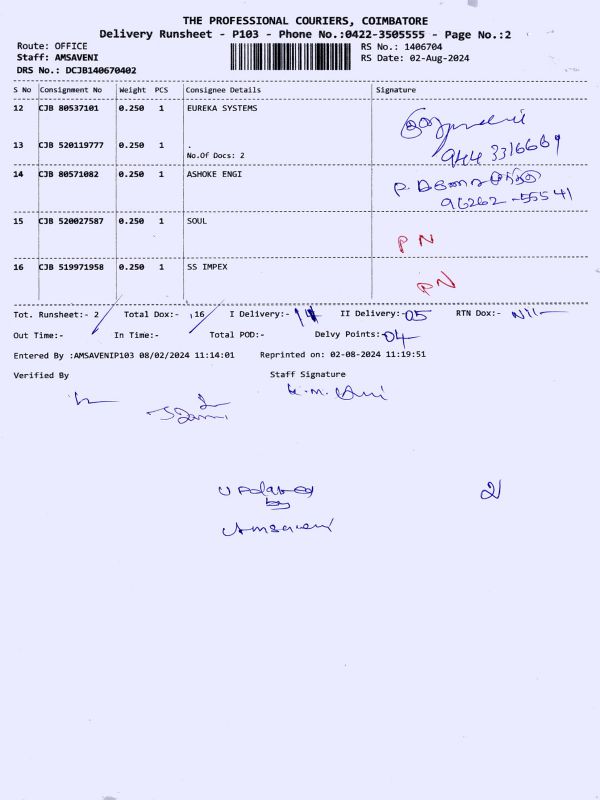 THE PROFESSIONAL COURIERS, COIMBATORE
Delivery Runsheet - P103 - Phone No.:0422-3505555 - Page No.:2
Route: OFFICE RS No.: 1406704
Staff: AMSAVENI RS Date: 02-Aug-2024
DRS No.: DCJB140670402
S No Consignment No Weight PCS Consignee Details Signature
12 CJB 80537101 0.250 1 EUREKA SYSTEMS
13 CJB 520119777 0.250 1 .
No.Of Docs: 2
944 3316669
14 CJB 80571082 0.250 1 ASHOKE ENGI
96262-55541
15 CJB 520027587 0.250 1 SOUL
PN
16 CJB 519971958 0.250 1 SS IMPEX
PN
Tot. Runsheet:- 2 Total Dox:- ,16 I Delivery:- 11 II Delivery:- 05 RTN Dox:- Nil
Out Time:- In Time:- Total POD:- Delvy Points:- 04
Entered By :AMSAVENIP103 08/02/2024 11:14:01 Reprinted on: 02-08-2024 11:19:51
Verified By Staff Signature
Updated 2
by
Amsaveni